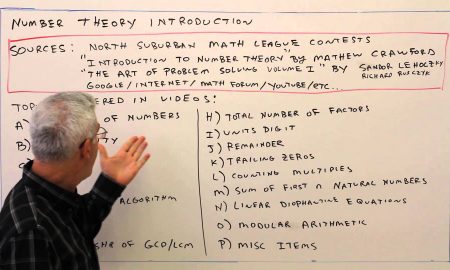 NUMBER THEORY INTRODUCTION
SOURCES: NORTH SUBURBAN MATH LEAGUE CONTESTS
"INTRODUCTION TO NUMBER THEORY" BY MATHEW CRAWFORD
"THE ART OF PROBLEM SOLVING VOLUME I" BY SANDOR LEHOCZKY
RICHARD RUSCZYK
GOOGLE/INTERNET/MATH FORUM/YOUTUBE/ETC...
IN VIDEOS:
A) OF NUMBERS
B)
ALGORITHM
OF GCD/LCM
H) TOTAL NUMBER OF FACTORS
I) UNITS DIGIT
J) REMAINDER
K) TRAILING ZEROS
L) COUNTING MULTIPLES
M) SUM OF FIRST n NATURAL NUMBERS
N) LINEAR DIOPHANTINE EQUATIONS
O) MODULAR ARITHMETIC
P) MISC ITEMS